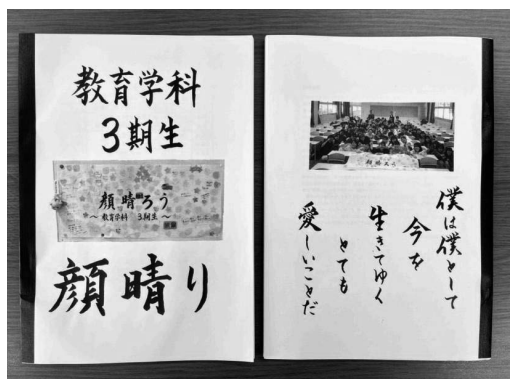 教育学科
3期生
顔晴ろう
～教育学科 3期生～
顔晴り
顔晴ろう
僕は僕として
今を
生きてゆく
とても
愛しいことだ